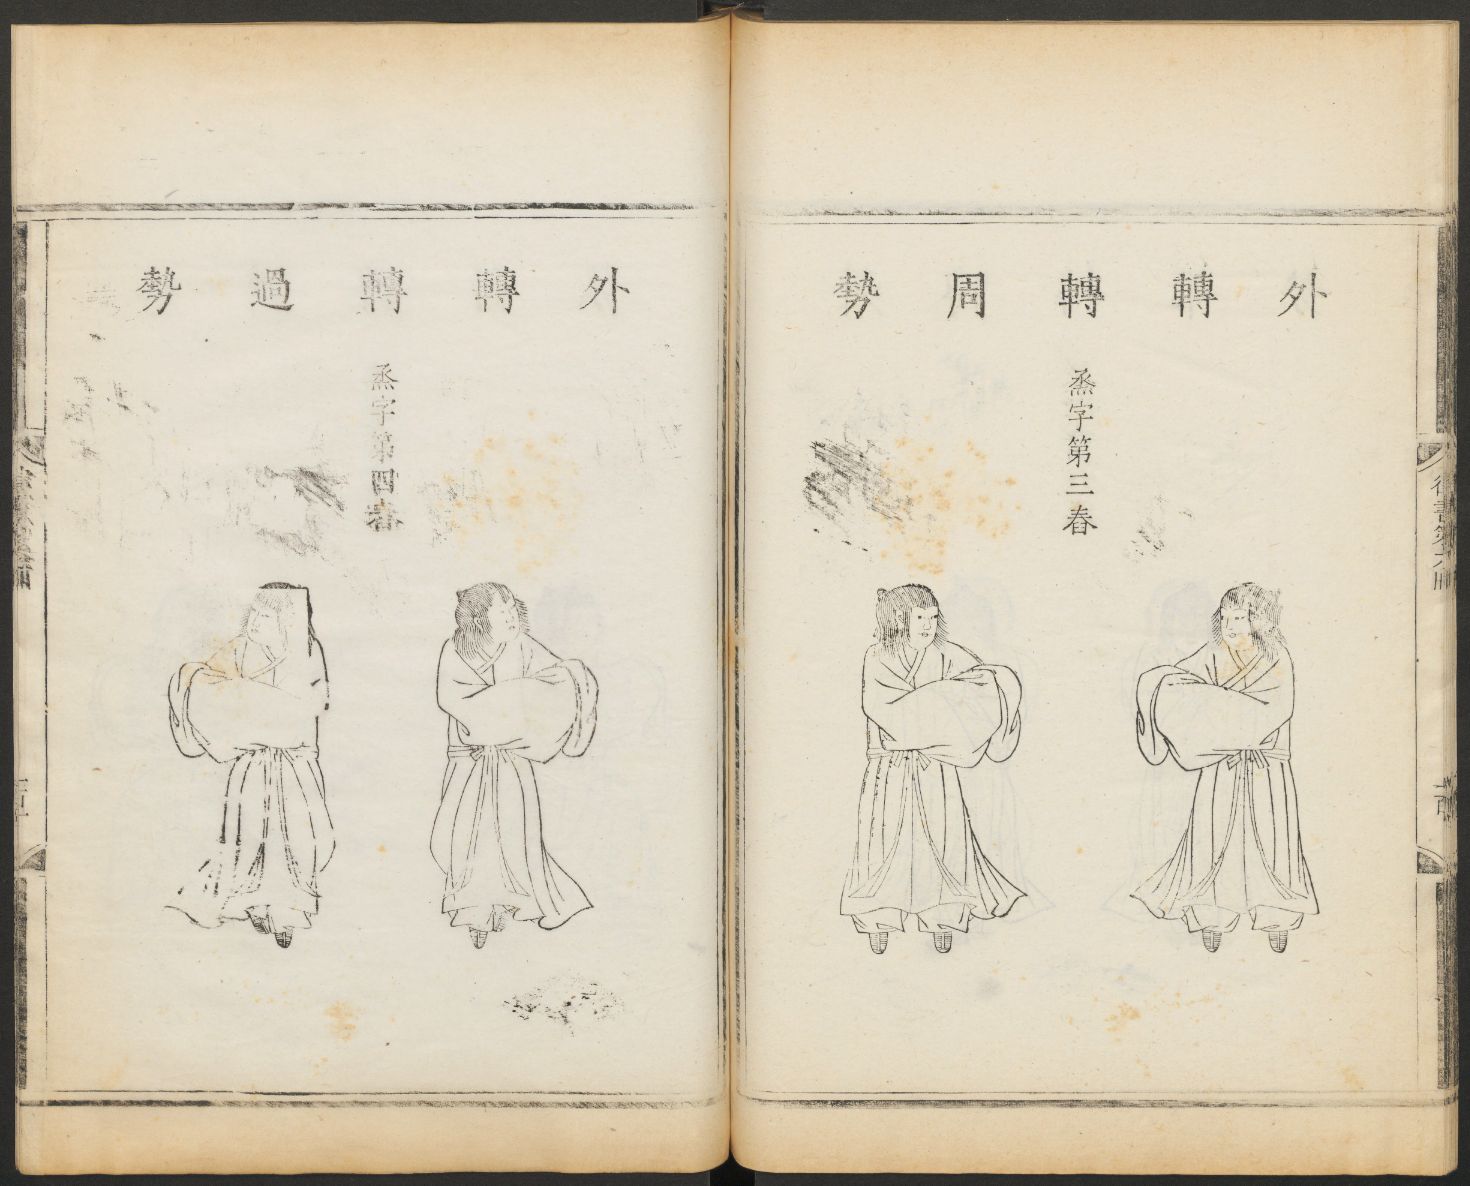 外轉轉周勢
烝字第三舂
外轉轉過勢
烝字第四舂